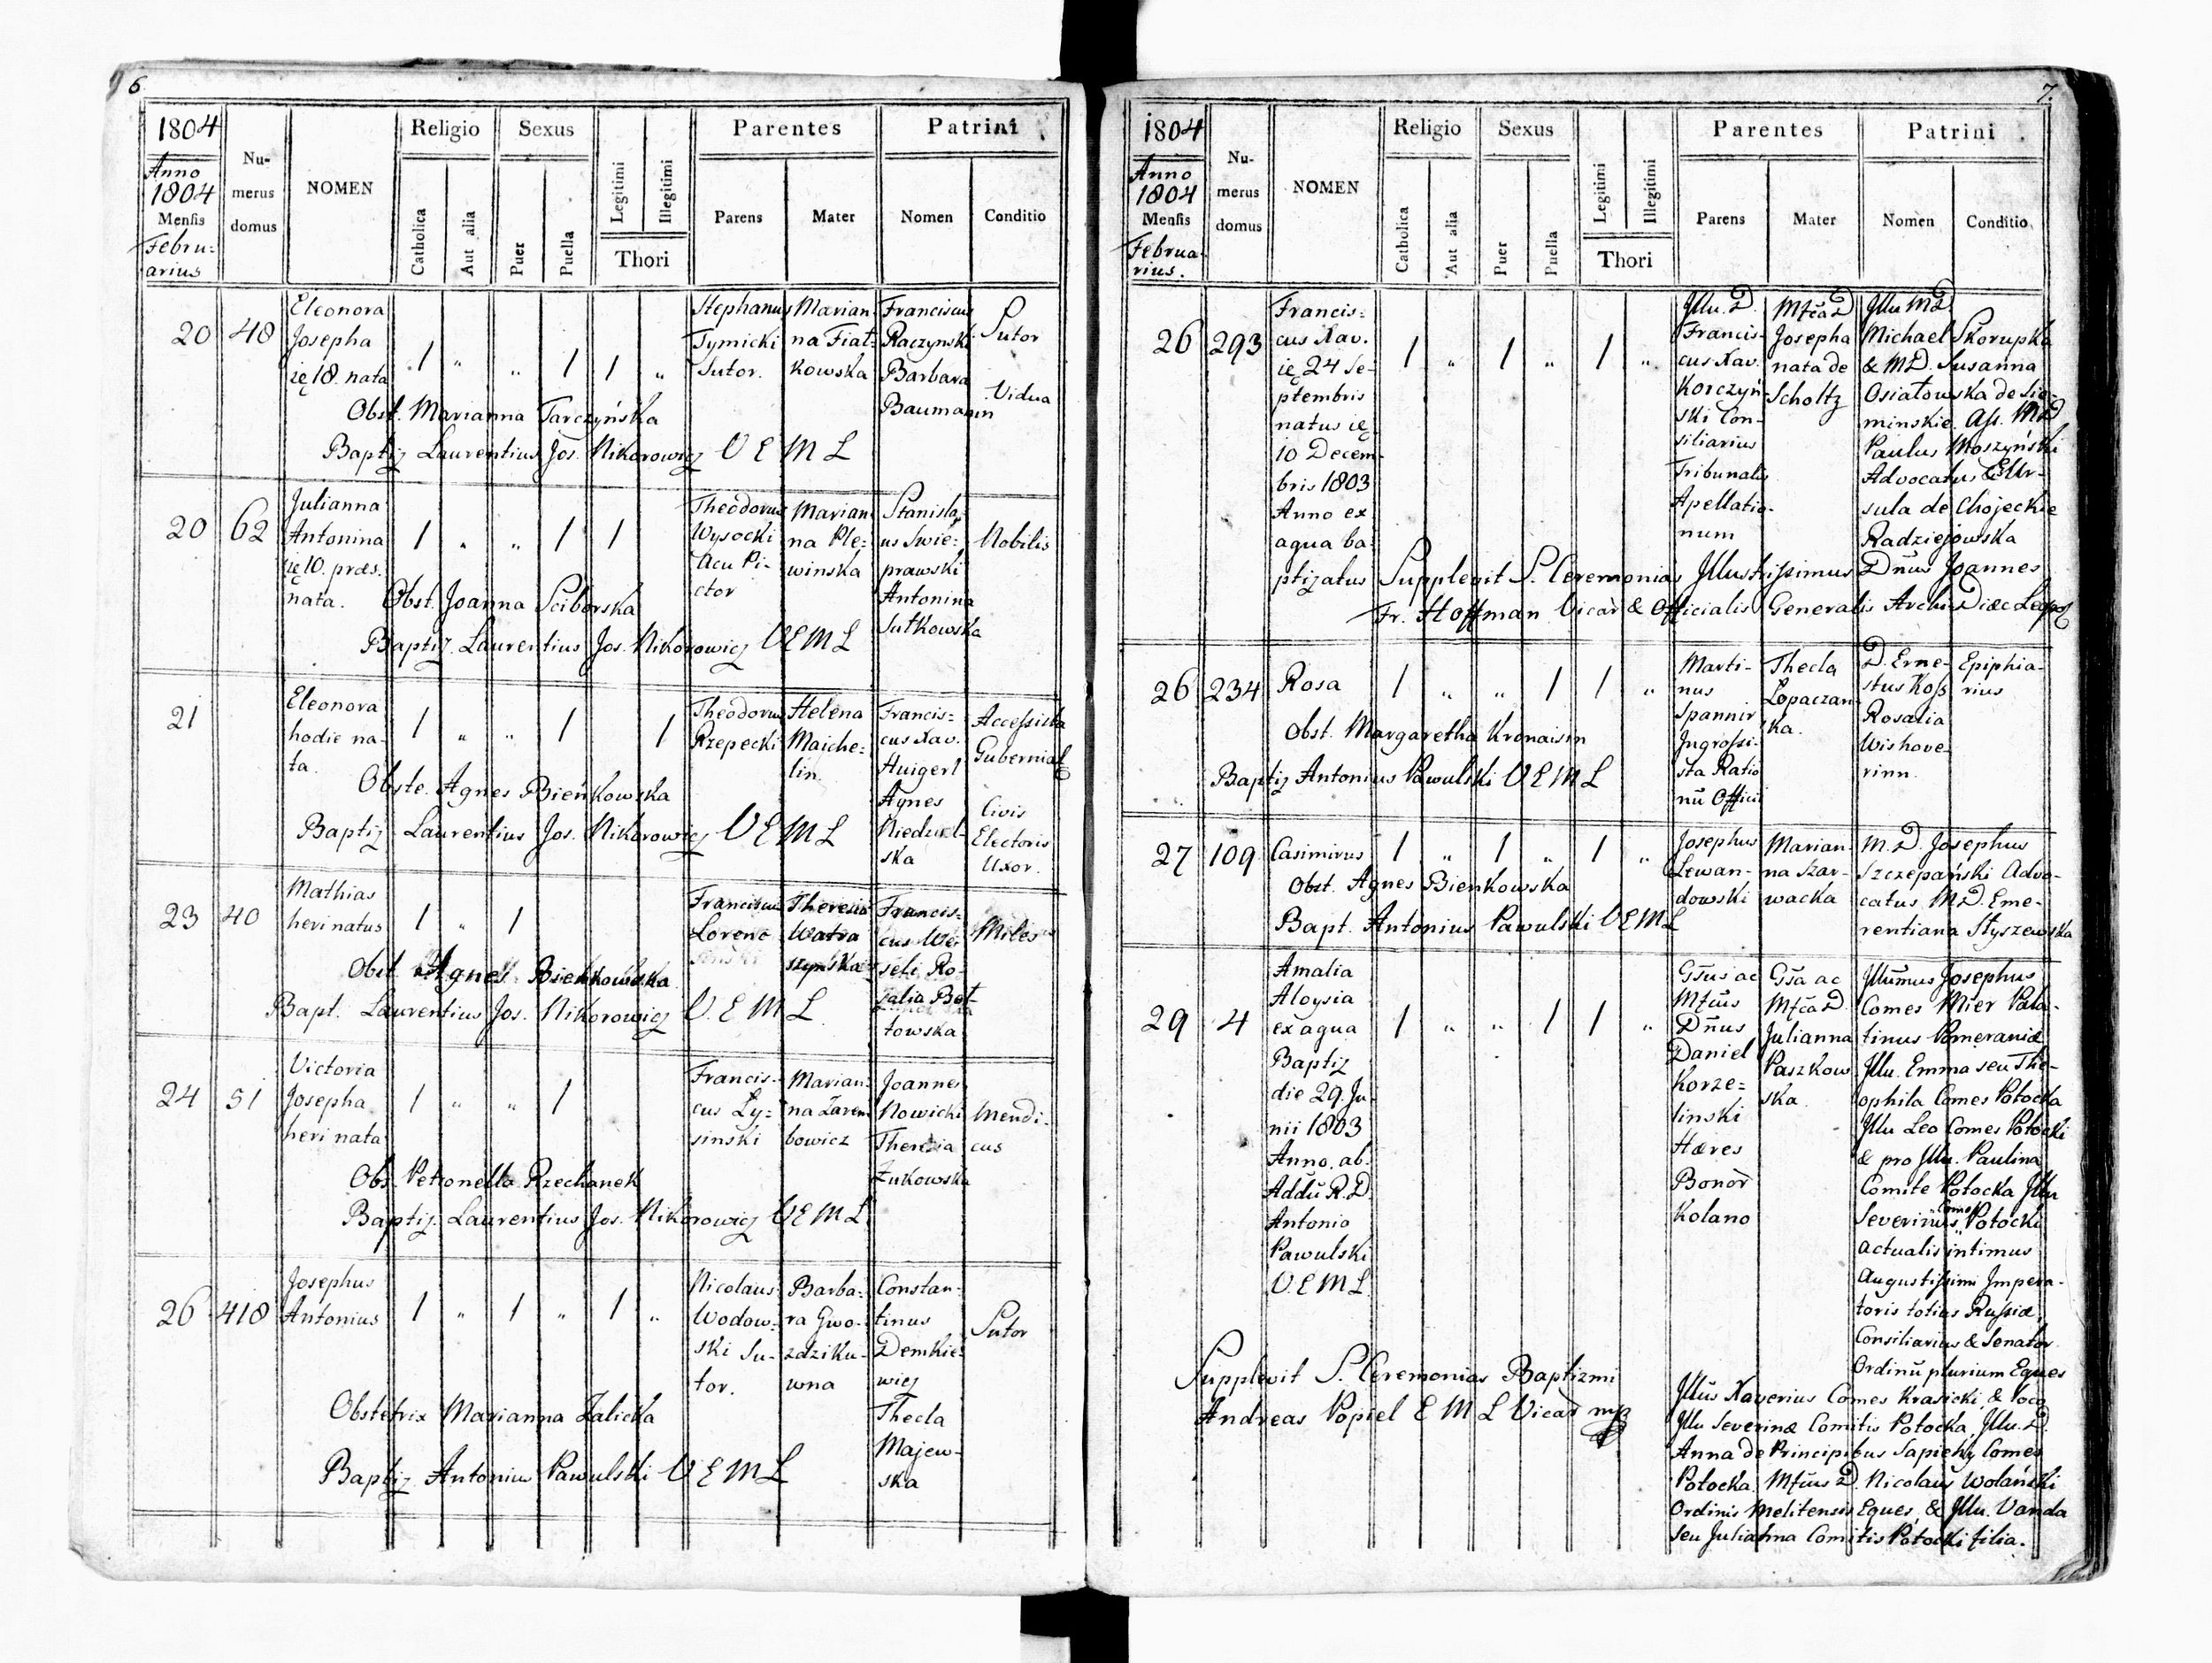 6
1804
Anno
1804
Mensis
Febru:
arius
Nu-
merus
domus
NOMEN
Religio
Catholica
Aut alia
Sexus
Puer
Puella
Legitimi
Illegitimi
Thori
Parentes
Parens
Mater
Patrini
Nomen
Conditio
20 48
Eleonora
Josepha
ię 18. nata
1 " " 1 1 "
Stephanus
Tymicki
Sutor.
Marian
na Fiał-
kowska
Franciscus
Raczynski
Barbara
Baumanin
Sutor
Vidua
Obst. Marianna Tarczyńska
Baptiz Laurentius Jos. Nikorowicz V E M L
20 62
Julianna
Antonina
ię 10. præs.
nata.
1 " " 1 1
Theodorus
Wysocki
Acu Pi-
ctor
Marian
na Ple:
winska
Stanisla,
us Swie:
prawski
Antonina
Sutkowska
Nobilis
Obst. Joanna Sciborska
Baptiz. Laurentius Jos. Nikorowicz V E M L
21
Eleonora
hodie na-
ta.
1 " " 1 1
Theodorus
Rzepecki
Helena
Maiche-
lin.
Francis=
cus Xav.
Huigerl
Agnes
Niedzel-
ska
Accessista
Gubernial
Civis
Electoris
Uxor.
Obste. Agnes Bieńkowska
Baptiz Laurentius Jos. Nikorowicz V E M L
23 40
Mathias
heri natus
1 " 1
Franciscus
Lorenc
Theresia
Watra
szynska
Francis=
cus Wei
seli Ro-
zalia Bet-
towska
Miles
Obst. Agnes Bienkowska
Bapt. Laurentius Jos. Nikorowicz V. E M L
24 51
Victoria
Josepha
heri nata
1 " " 1
Francis-
cus Ly=
sinski
Marian-
na Zarem
bowicz
Joannes
Nowicki
Theresia
Żukowska
Mendi-
cus
Obs. Petronella Rzechanek
Baptiz. Laurentius Jos. Nikorowicz V E M L
26 418
Josephus
Antonius
1 " 1 " 1 "
Nicolaus
Wodow-
ski Su-
tor.
Barba-
ra Gwo-
zdziku-
wna
Constan-
tinus
Demkie-
wicz
Thecla
Majew-
ska
Sutor
Obstetrix Marianna Zalicka
Baptiz Antonius Pawulski V E M L
7.
1804
Anno
1804
Mensis
Februa-
rius.
Nu-
merus
domus
NOMEN
Religio
Catholica
Aut alia
Sexus
Puer
Puella
Legitimi
Illegitimi
Thori
Parentes
Parens
Mater
Patrini
Nomen
Conditio
26 293
Francis=
cus Xav.
ię 24 Se-
ptembris
natus ię
10 Decem-
bris 1803
Anno ex
aqua ba-
ptizatus
1 " 1 " 1 "
Jllu. D
Francis-
cus Xav.
Korczyń-
ski Con-
siliarius
Tribunalis
Apellatio-
num
Mfca D
Josepha
nata de
Scholtz
Jllu MD
Michael Skorupka
& MD. Susanna
Osiatowska de Sie-
minskie. Ass. MD
Paulus Moszyński
Advocatus & Ur-
sula de Chojeckie
Radziejowska
Supplevit S. Ceremonias Jllustrissimus Dnus Joannes
Fr. Hoffman Vicar & Officialis Generalis Archi Diæc Leopol
26 234
Rosa
1 " " 1 1 "
Marti-
nus
Spannir
Jngrossi-
sta Ratio
nū Officii
Thecla
Łopaczan-
ka.
D. Erne-
stus Koss
Rosalia
Wishove-
rinn.
Epiphia-
rius
Obst. Margaretha Kronaisin
Baptiz Antonius Pawulski V E M L
27 109
Casimirus
1 " 1 " 1 "
Josephus
Lewan-
dowski
Marian-
na Szar-
wacka
M. D. Josephus
Szczepański Advo-
catus MD. Eme-
rentiana Styszewska
Obst. Agnes Bienkowska
Bapt. Antonius Pawulski V E M L
29 4
Amalia
Aloysia
ex aqua
Baptiz
die 29. Ju-
nii 1803
Anno. ab.
Addū R. D.
Antonio
Pawulski
V. E M L
1 " " 1 1 "
Gsus ac
Mfcus
Dnus
Daniel
Korze=
linski
Hæres
Bonor
Kolano
Gsa ac
Mfca D
Julianna
Paszkow
ska
Jllumus Josephus
Comes Mier Pala-
tinus Pomeraniæ
Jllu. Emma seu The-
ophila Comes Potocka
Jllu Leo Comes Potocki
& pro Jllu. Paulina
Comite Potocka Jllu
Severinus Comes Potocki
actualis intimus
Augustissimi Jmpera-
toris totius Russiæ,
Consiliarius & Senator
Ordinū plurium Eques
Jllus Xaverius Comes Krasicki, & loco
Jllu Severinæ Comitis Potocka, Jllu. D.
Anna de Principibus Sapiehy Comes
Potocka, Mfcus D. Nicolaus Wolański
Ordinis Melitensis Eques, & Jllu. Vanda
seu Julianna Comitis Potocki filia.
Supplevit S. Ceremonias Baptizmi
Andreas Popiel E M L Vicar mp